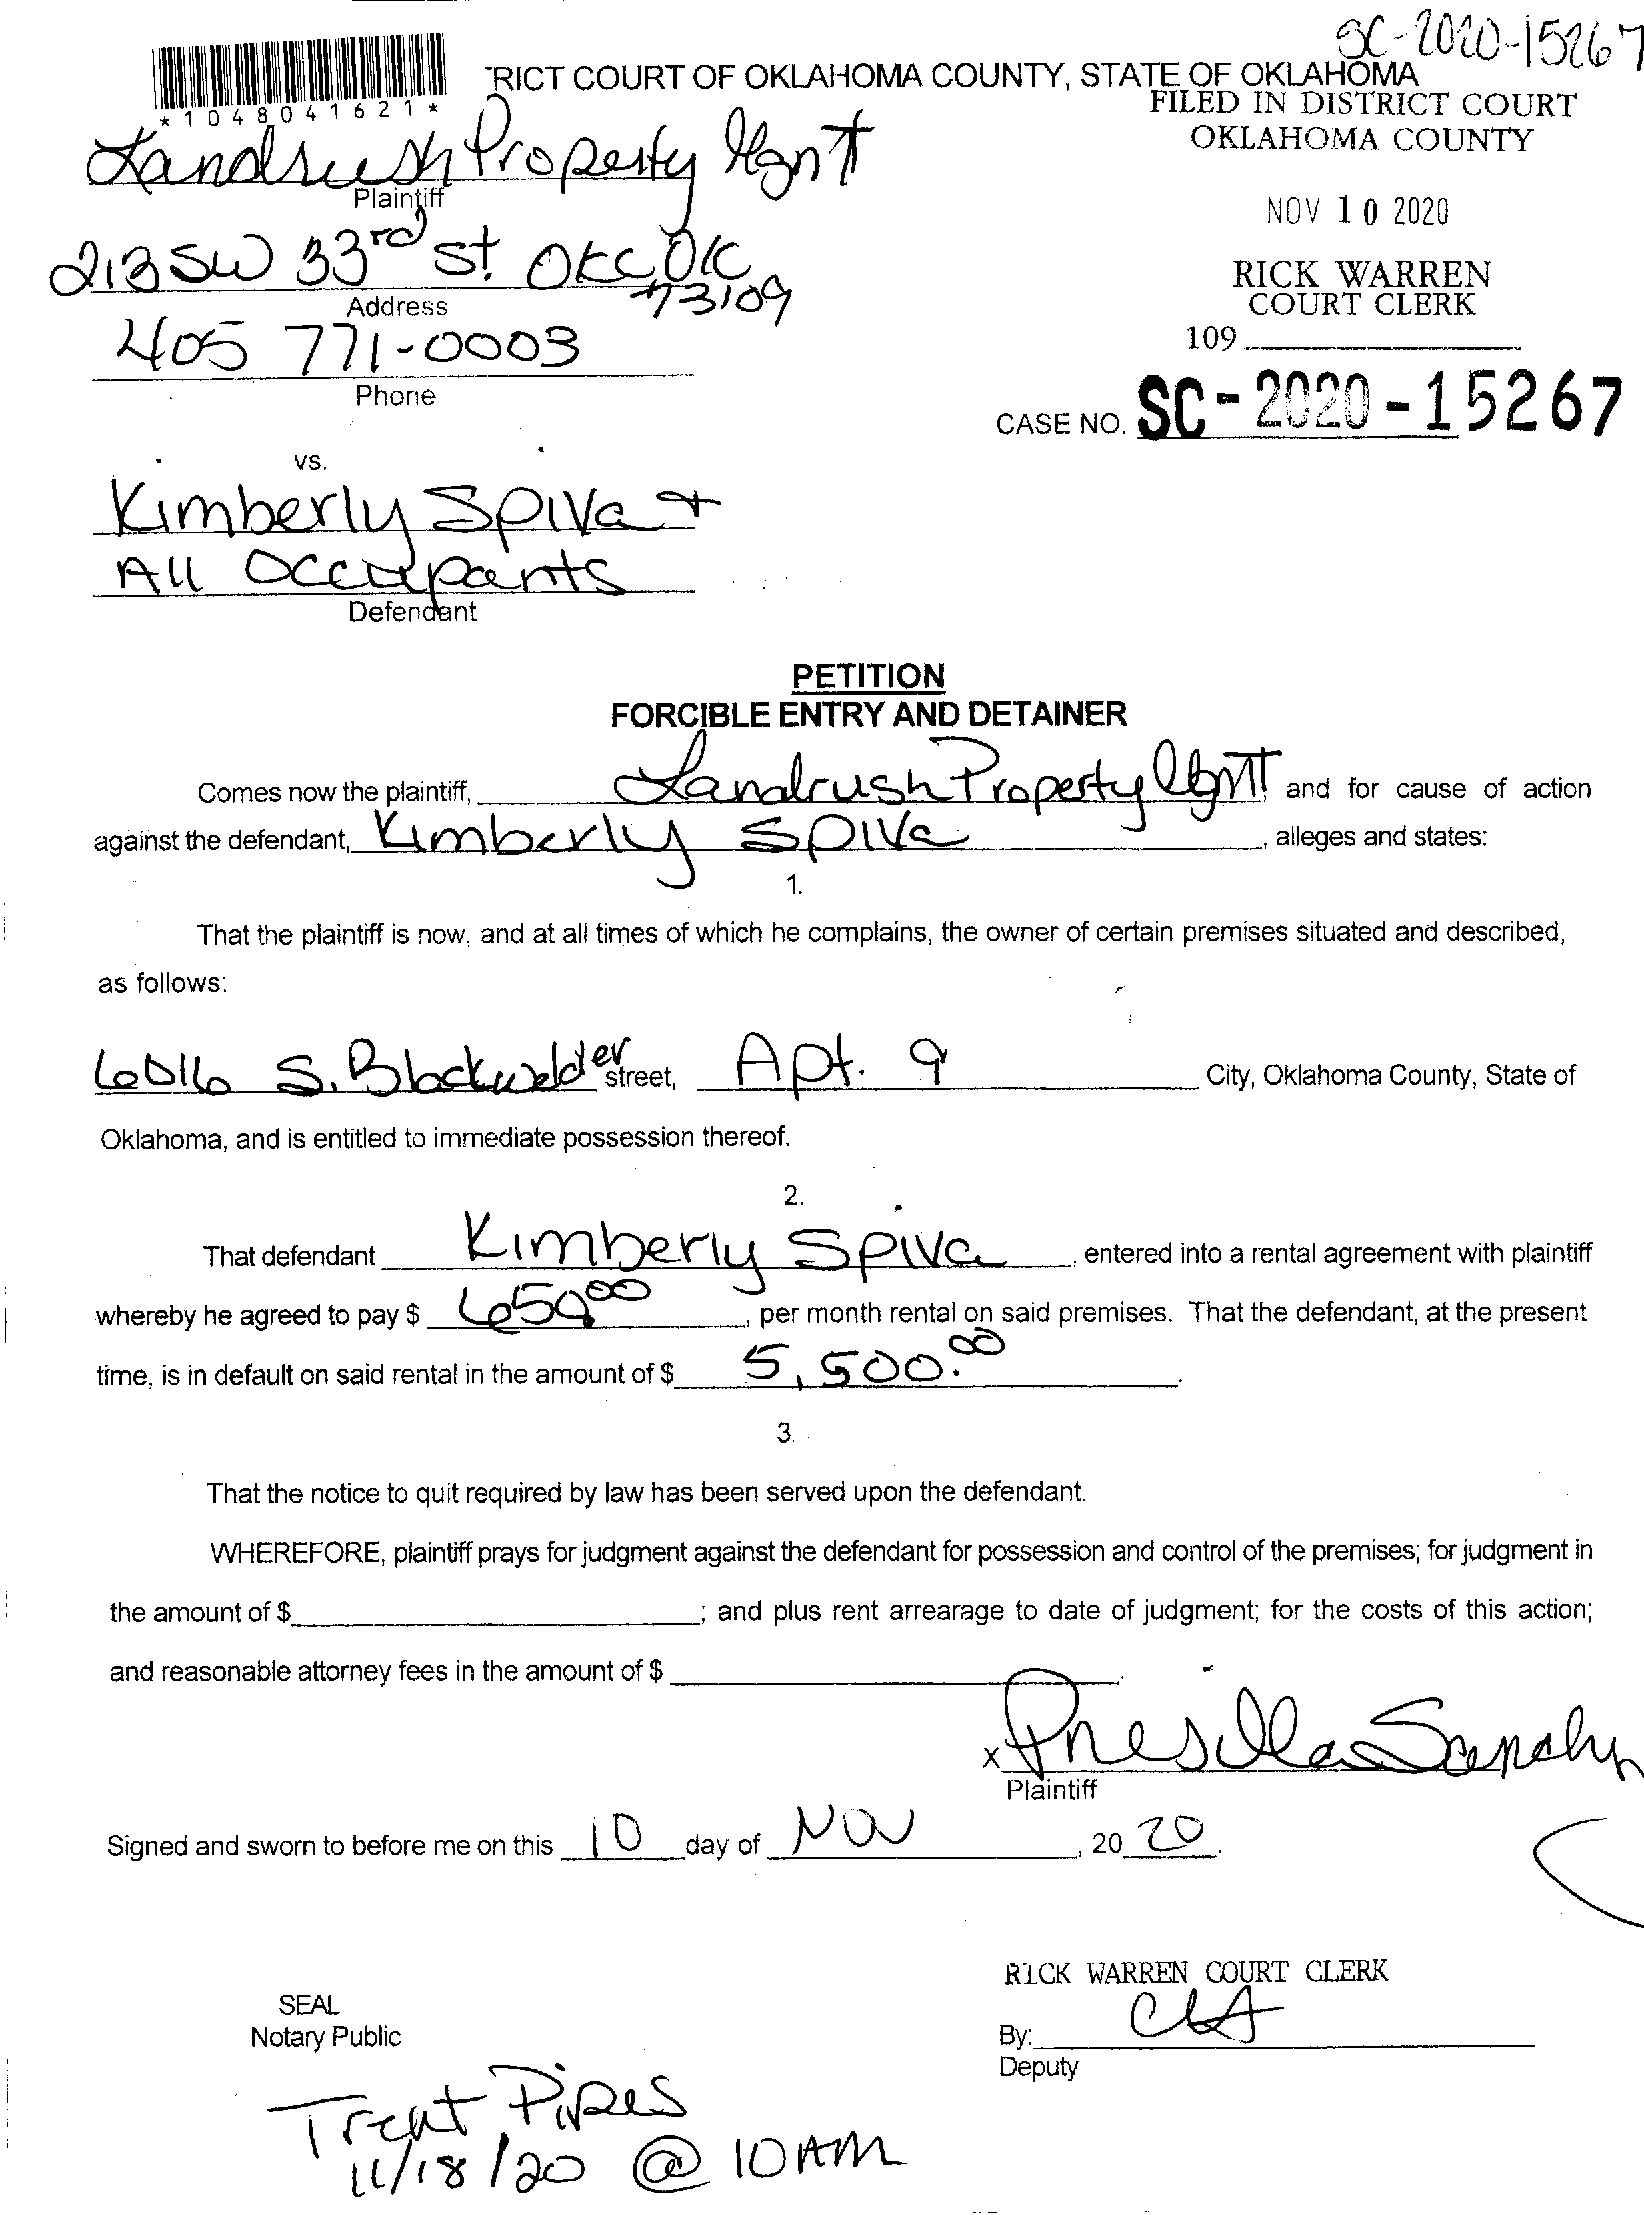 SC-2020-15267
*1048041621*
'RICT COURT OF OKLAHOMA COUNTY, STATE OF OKLAHOMA
FILED IN DISTRICT COURT
OKLAHOMA COUNTY
Landrush Property Mgnt
Plaintiff
NOV 10 2020
213 SW 33rd St OKC OK
73109
Address
RICK WARREN
COURT CLERK
405 771-0003
109
Phone
CASE NO. SC-2020-15267
vs.
Kimberly Spiva +
All Occupants
Defendant
PETITION
FORCIBLE ENTRY AND DETAINER
Comes now the plaintiff, Landrush Property Mgmt and for cause of action
against the defendant, Kimberly Spiva, alleges and states:
1.
That the plaintiff is now, and at all times of which he complains, the owner of certain premises situated and described,
as follows:
6016 S. Blackwelder street, Apt. 9 City, Oklahoma County, State of
Oklahoma, and is entitled to immediate possession thereof.
2.
That defendant Kimberly Spiva, entered into a rental agreement with plaintiff
whereby he agreed to pay $ 650.00, per month rental on said premises. That the defendant, at the present
time, is in default on said rental in the amount of $ 5,500.00.
3.
That the notice to quit required by law has been served upon the defendant.
WHEREFORE, plaintiff prays for judgment against the defendant for possession and control of the premises; for judgment in
the amount of $ ; and plus rent arrearage to date of judgment; for the costs of this action;
and reasonable attorney fees in the amount of $ .
x
Plaintiff
Signed and sworn to before me on this 10 day of Nov, 20 20.
RICK WARREN COURT CLERK
SEAL
Notary Public
By:
Deputy
Trent Pipes
11/18/20 @ 10 AM